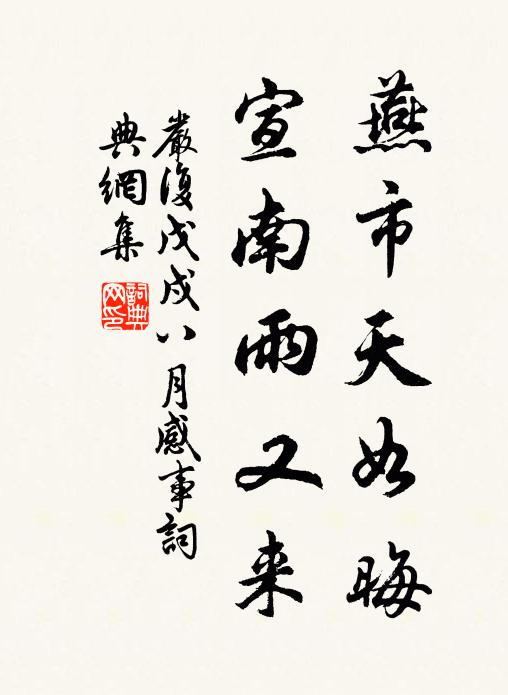 燕市天如晦
宣南雨又来
嚴復戊戌八月感事詞
典網集
詞典
网印